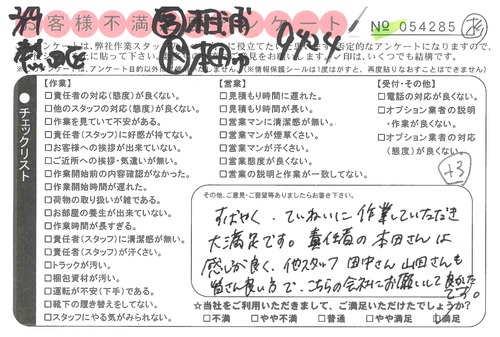 お客様不満足アンケート
No 054285
0424
チェックリスト
【作業】
□責任者の対応(態度)が良くない。
□他のスタッフの対応(態度)が良くない。
□作業を見ていて不安がある。
□責任者(スタッフ)に好感が持てない。
□お客様への挨拶が出来ていない。
□ご近所への挨拶・気遣いが無い。
□作業開始前の内容確認がなかった。
□作業開始時間が遅れた。
□荷物の取り扱いが雑である。
□お部屋の養生が出来ていない。
□作業時間が長すぎる。
□責任者(スタッフ)に清潔感が無い。
□責任者(スタッフ)が汗くさい。
□トラックが汚い。
□梱包資材が汚い。
□運転が不安(下手)である。
□靴下の履き替えをしてない。
□スタッフにやる気がみられない。
【営業】
□見積もり時間に遅れた。
□見積もり時間が長い。
□営業マンに清潔感が無い。
□営業マンが煙草くさい。
□営業マンが汗くさい。
□営業態度が良くない。
□営業の説明と作業が一致してない。
【受付・その他】
□電話の対応が良くない。
□オプション業者の説明
・作業が良くない。
□オプション業者の対応
(態度)が良くない。
+3
その他、ご意見・ご要望等ありましたらお書き下さい。
すばやく、ていねいに作業していただき
大満足です。責任者の本田さんは
感じが良く、他スタッフ田中さん山田さんも
皆さん良い方で、こちらの会社にお願いして良かった
です。
☆当社をご利用いただきまして、ご満足いただけたでしょうか?
□不満 □やや不満 □普通 □やや満足 □満足